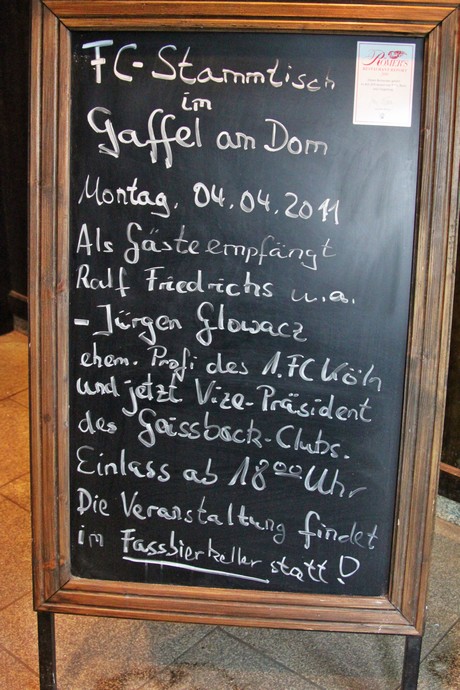 FC-Stammtisch
im
Gaffel am Dom
Montag, 04.04.2011
Als Gäste empfängt
Ralf Friedrichs u.a.
- Jürgen Glowacz
ehem. Profi des 1.FC Köln
und jetzt Vize-Präsident
des Geissbock-Clubs.
Einlass ab 18⁰⁰ Uhr
Die Veranstaltung findet
im Fassbierkeller statt!
RÖMER'S